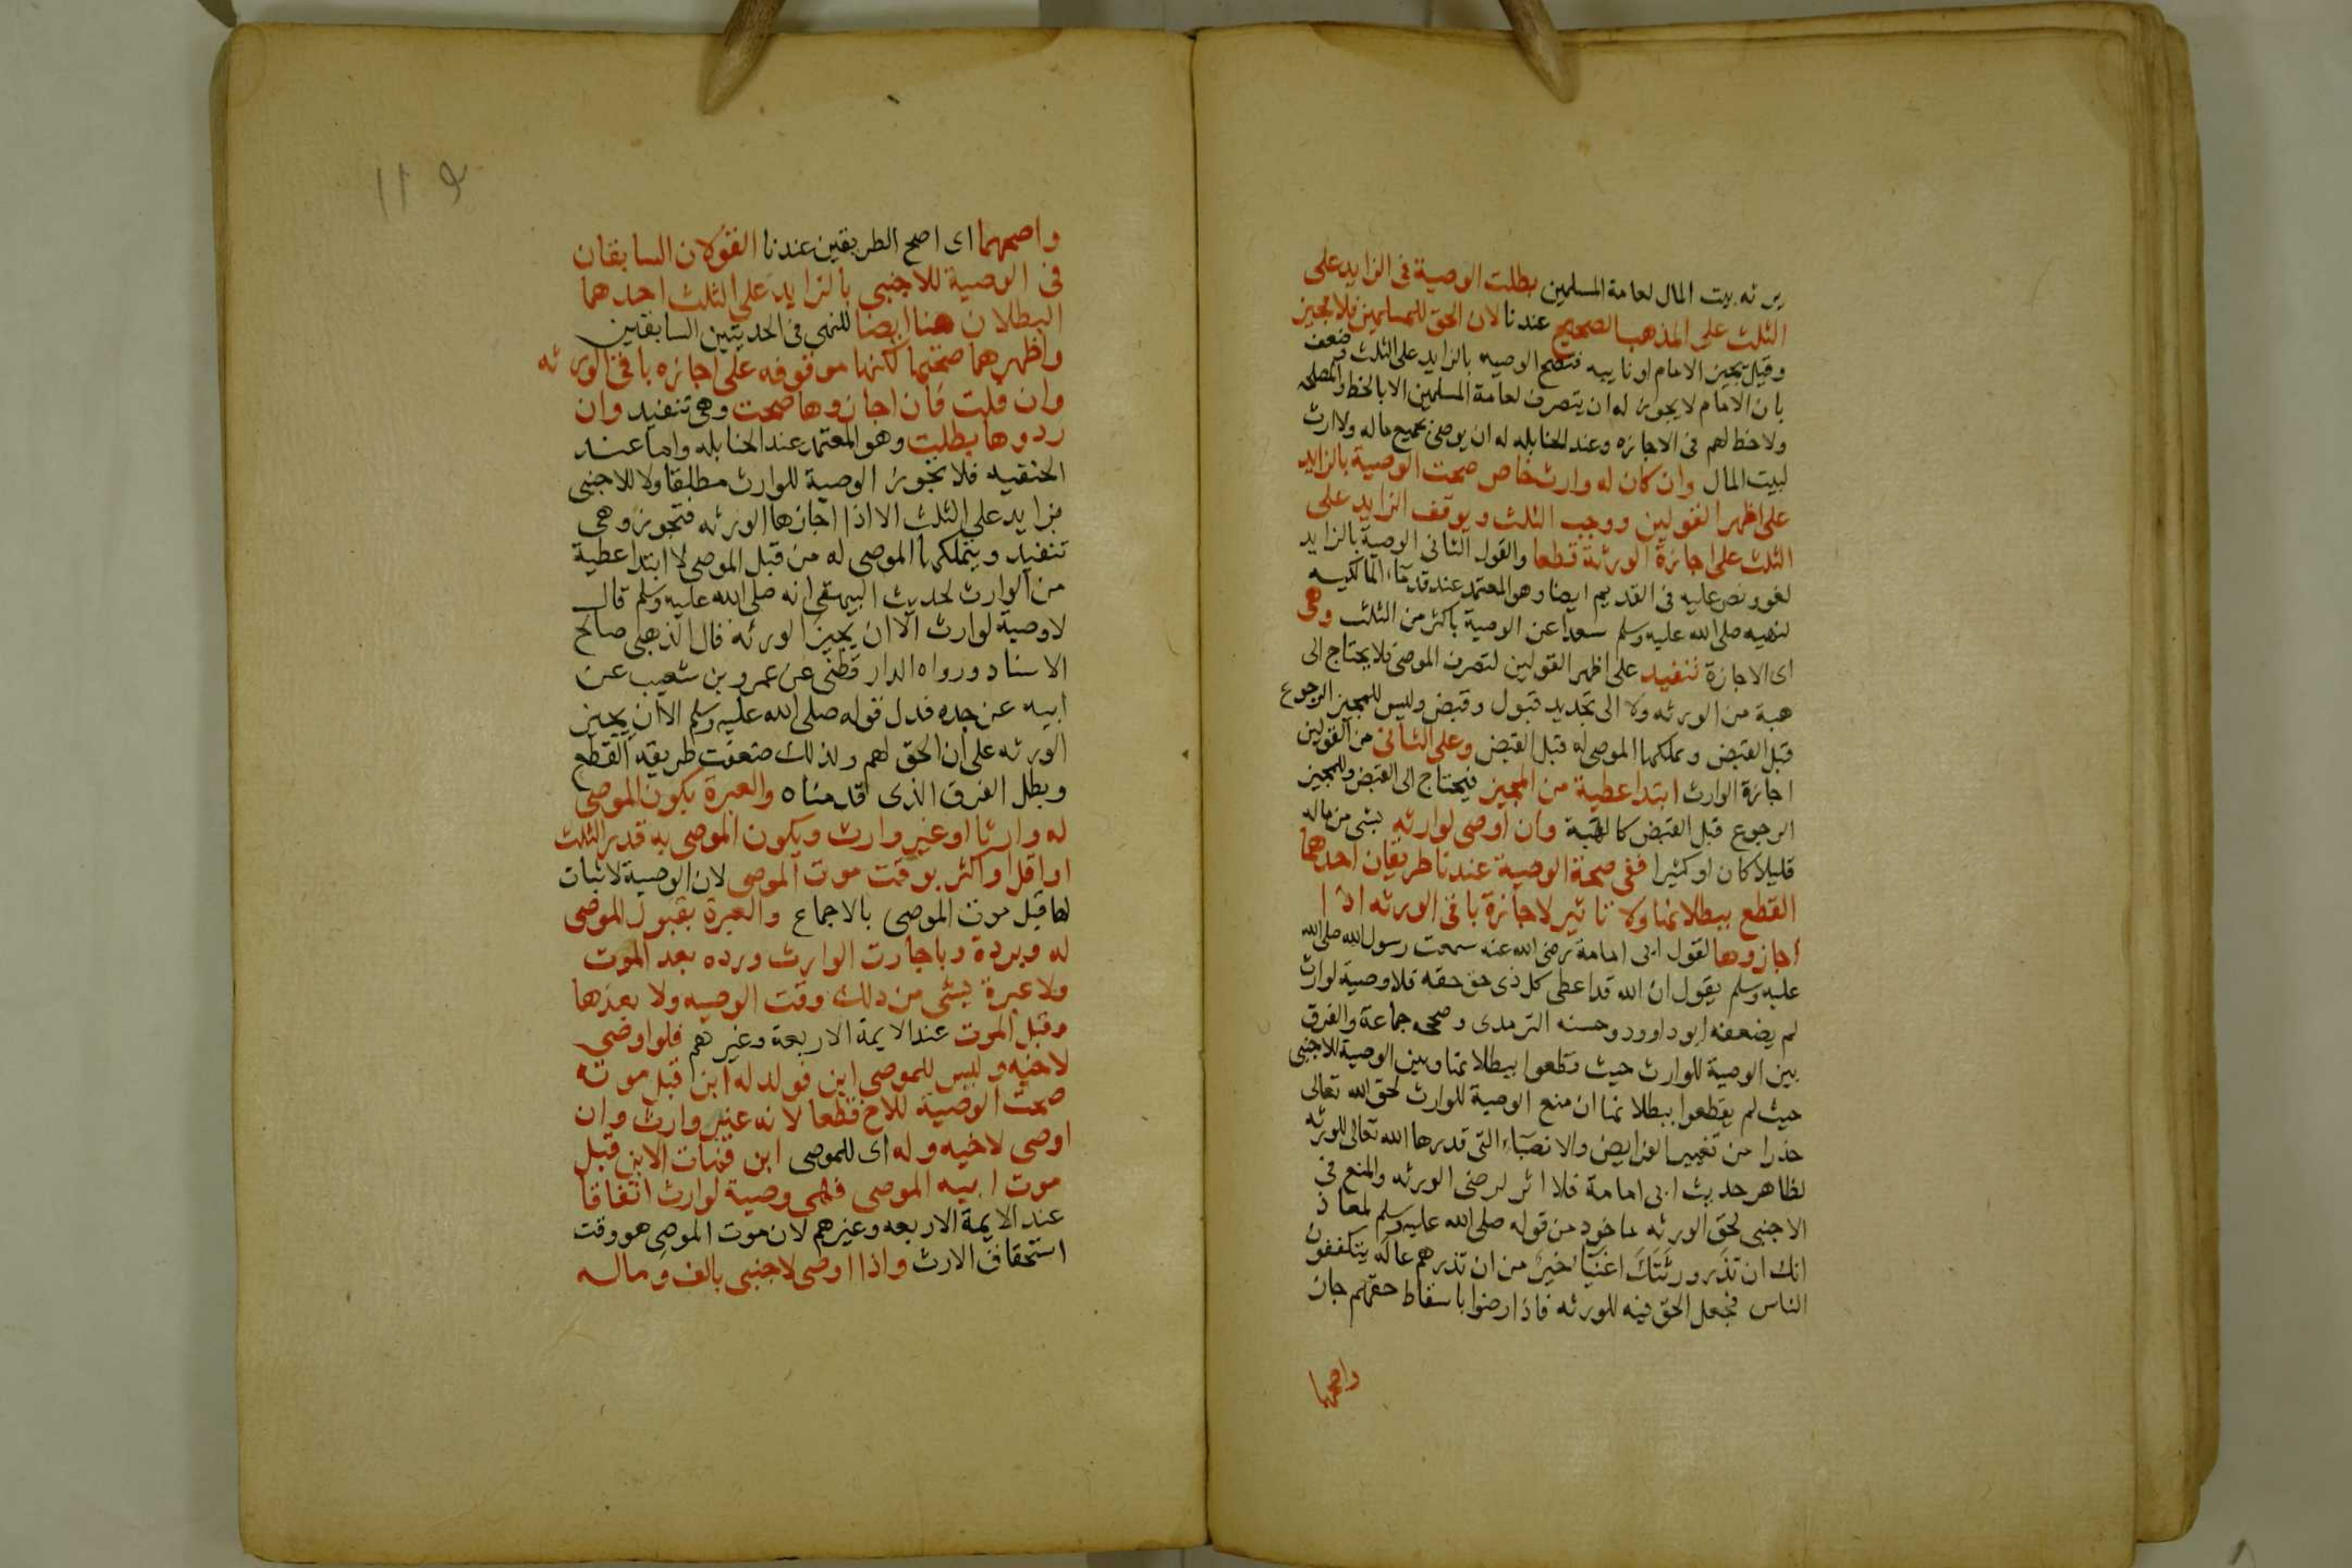 يرثه بيت المال لعامة المسلمين بطلت الوصية في الزايد على
الثلث على المذهب الصحيح عندنا لان الحق للمسلمين فلا مجيز
وقيل يجيز الامام او نايبه فتصح الوصيه بالزايد على الثلث وضعف
بان الامام لا يجوز له ان يتصرف لعامة المسلمين الا بالحظ والمصلحه
ولا حظ لهم في الاجازه وعند الحنابله له ان يوصي بجميع ماله ولا ارث
لبيت المال وان كان له وارث خاص صحت الوصية بالزايد
على اظهر القولين ووجب الثلث ويوقف الزايد على
الثلث على اجازة الورثة قطعا والقول الثاني الوصية بالزايد
لغو ونص عليه في القديم ايضا وهو المعتمد عند قدماء المالكيه
لنهيه صلى الله عليه وسلم سعدا عن الوصية باكثر من الثلث وهي
اى الاجازة تنفيد على اظهر القولين لتصرف الموصى فلا يحتاج الى
هبة من الورثه ولا الى تجديد قبول وقبض وليس للمجيز الرجوع
قبل القبض ويملكها الموصى له قبل القبض وعلى الثاني من القولين
اجازة الوارث ابتدا عطية من المجيز فيحتاج الى القبض وللمجيز
الرجوع قبل القبض كالهبة وان اوصى لوارثه بشى من ماله
قليلا كان او كثيرا ففي صحة الوصية عندنا طريقان احدهما
القطع ببطلانها ولا تاثير لاجازة باقى الورثه اذا
اجازوها لقول ابى امامة رضى الله عنه سمعت رسول الله صلى الله
عليه وسلم يقول ان الله قد اعطى كل ذى حق حقه فلا وصية لوارث
لم يضعفه ابو داوود وحسنه الترمدى وصححه جماعة والفرق
بين الوصية للوارث حيث قطعوا ببطلانها وبين الوصية للاجنبى
حيث لم يقطعوا ببطلانها ان منع الوصية للوارث لحق الله تعالى
حذرا من تغيير الفرايض والانصباء التى قدرها الله تعالى للورثه
لظاهر حديث ابى امامة فلا اثر لرضى الورثه والمنع في
الاجنبى لحق الورثه ماخود من قوله صلى الله عليه وسلم لمعاذ
انك ان تذر ورثتك اغنيا خير من ان تذرهم عاله يتكففون
الناس فجعل الحق فيه للورثه فاذا رضوا باسقاط حقهم جاز
واصحهما
واصحهما اى اصح الطريقين عندنا القولان السابقان
فى الوصية للاجنبى بالزايد على الثلث احدهما
البطلان هنا ايضا للنهى فى الحديثين السابقين
واظهرهما صحتها لكنها موقوفه على اجازه باقى الورثه
وان قلت فان اجازوها صحت وهى تنفيد وان
ردوها بطلت وهو المعتمد عند الحنابله واما عند
الحنفيه فلا تجوز الوصية للوارث مطلقا ولا للاجنبى
بزايد على الثلث الا اذا اجازها الورثه فتجوز وهى
تنفيد ويتملكها الموصى له من قبل الموصى لا ابتدا عطية
من الوارث لحديث البيهقى انه صلى الله عليه وسلم قال
لا وصية لوارث الا ان يجيز الورثه قال الذهبى صالح
الاسناد ورواه الدارقطنى عن عمرو بن شعيب عن
ابيه عن جده فدل قوله صلى الله عليه وسلم الا ان يجيز
الورثه على ان الحق لهم ولذلك ضعفت طريقه القطع
وبطل الفرق الذى قدمناه والعبرة بكون الموصى
له وارثا او غير وارث وبكون الموصى به قدر الثلث
او اقل او اكثر بوقت موت الموصى لان الوصية لا ثبات
لها قبل موت الموصى بالاجماع والعبرة بقبول الموصى
له وبرده وباجازت الوارث ورده بعد الموت
ولا عبرة بشى من دلك وقت الوصيه ولا بعدها
وقبل الموت عند الايمة الاربعة وغيرهم فلو اوصى
لاخيه وليس للموصى ابن فولد له ابن قبل موته
صحت الوصية للاخ قطعا لانه غير وارث وان
اوصى لاخيه وله اى للموصى ابن فمات الابن قبل
موت ابيه الموصى فهى وصية لوارث اتفاقا
عند الايمة الاربعه وغيرهم لان موت الموصى هو وقت
استحقاق الارث واذا اوصى لاجنبى بالف وماله